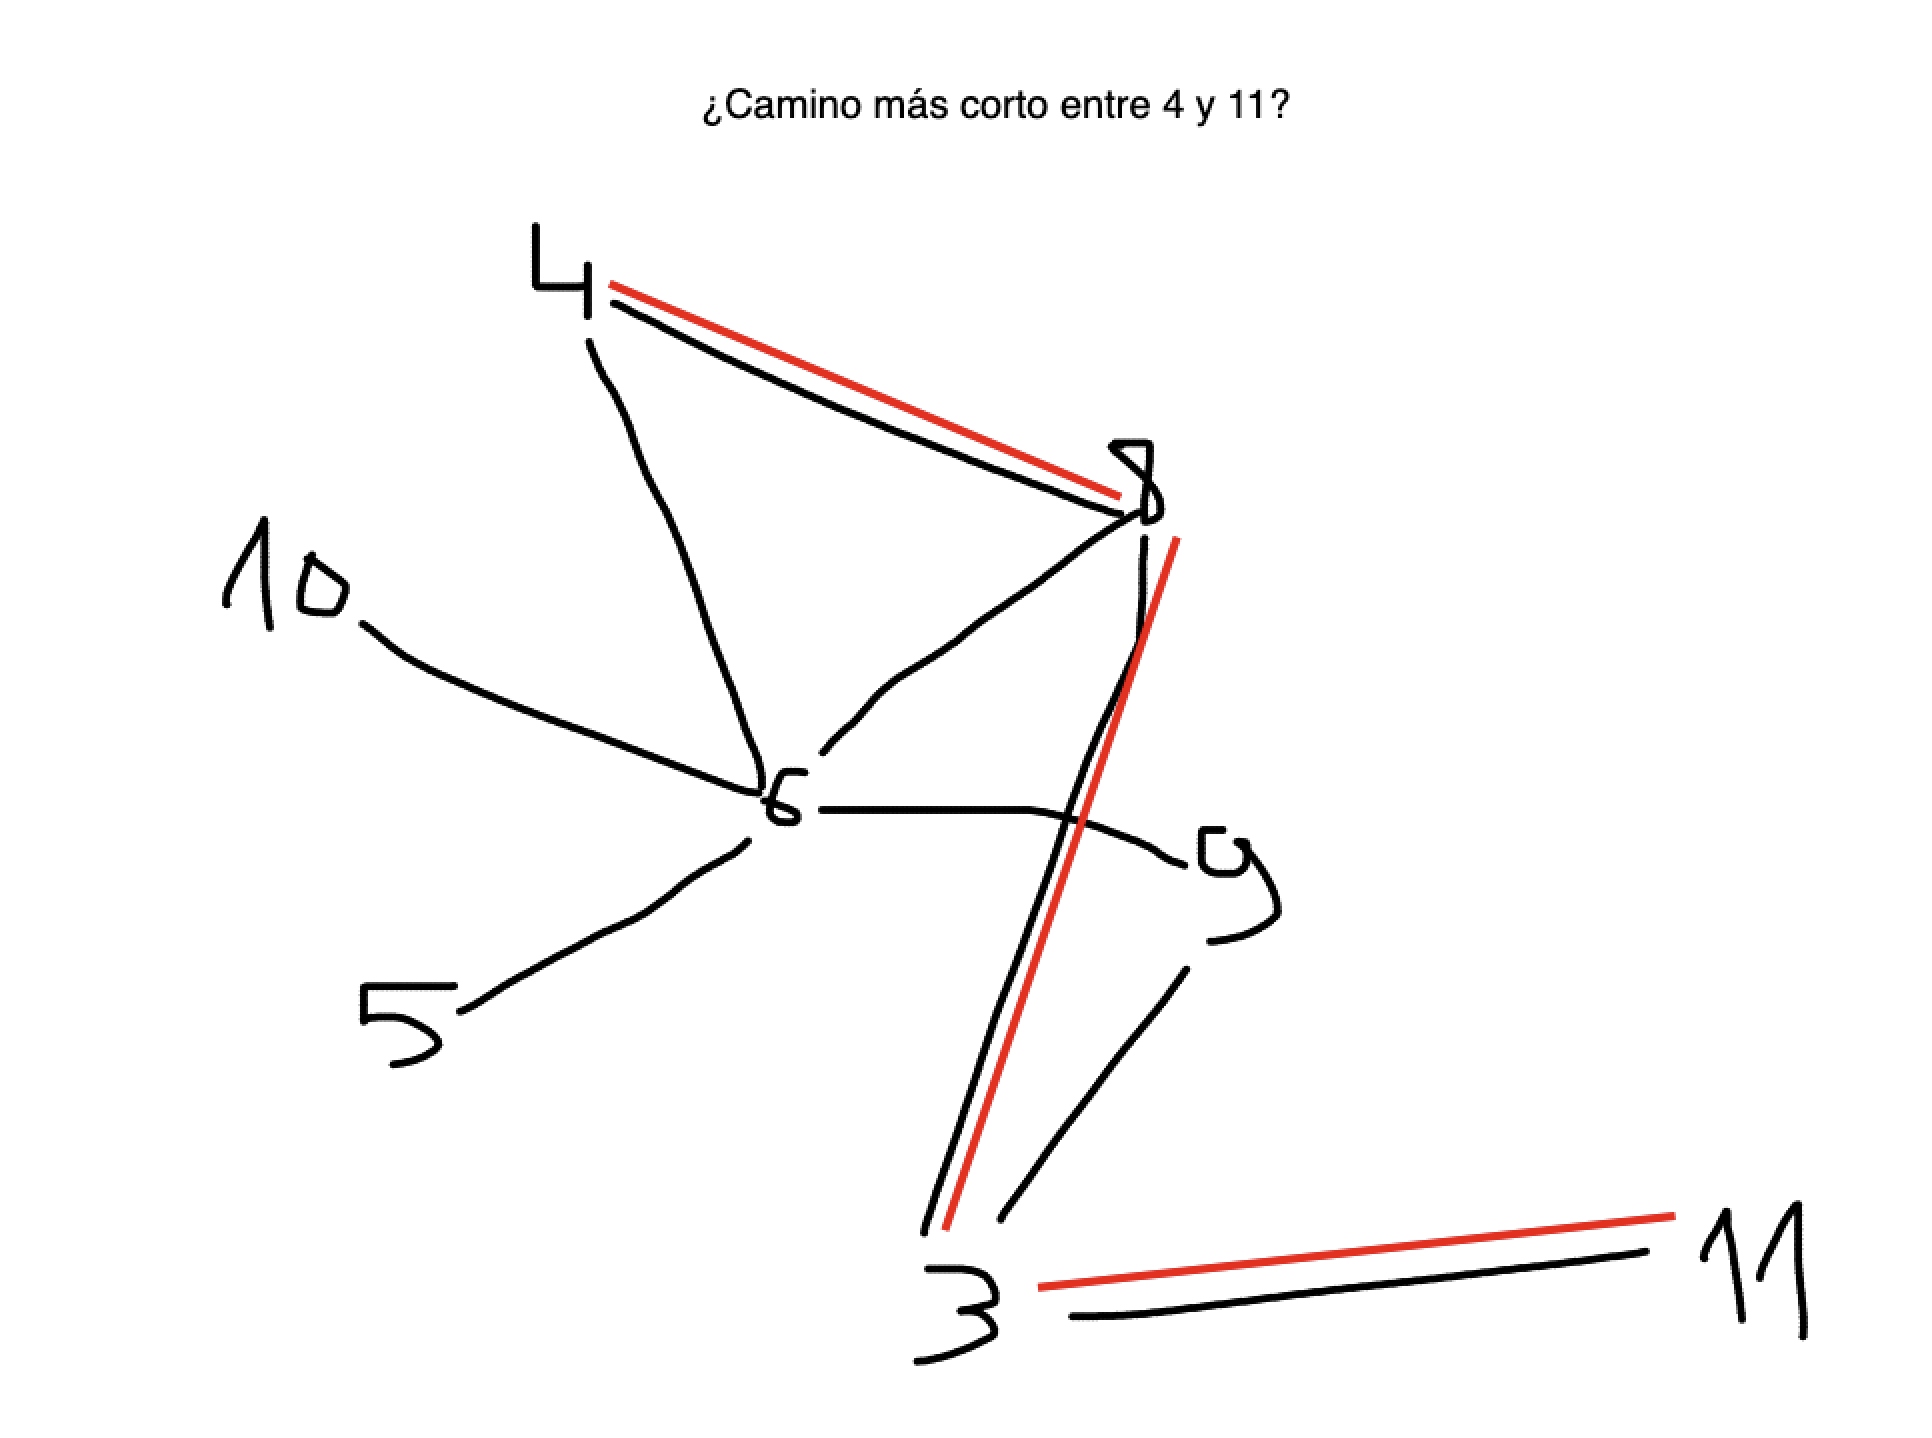 ¿Camino más corto entre 4 y 11?
4
8
10
6
9
5
3
11